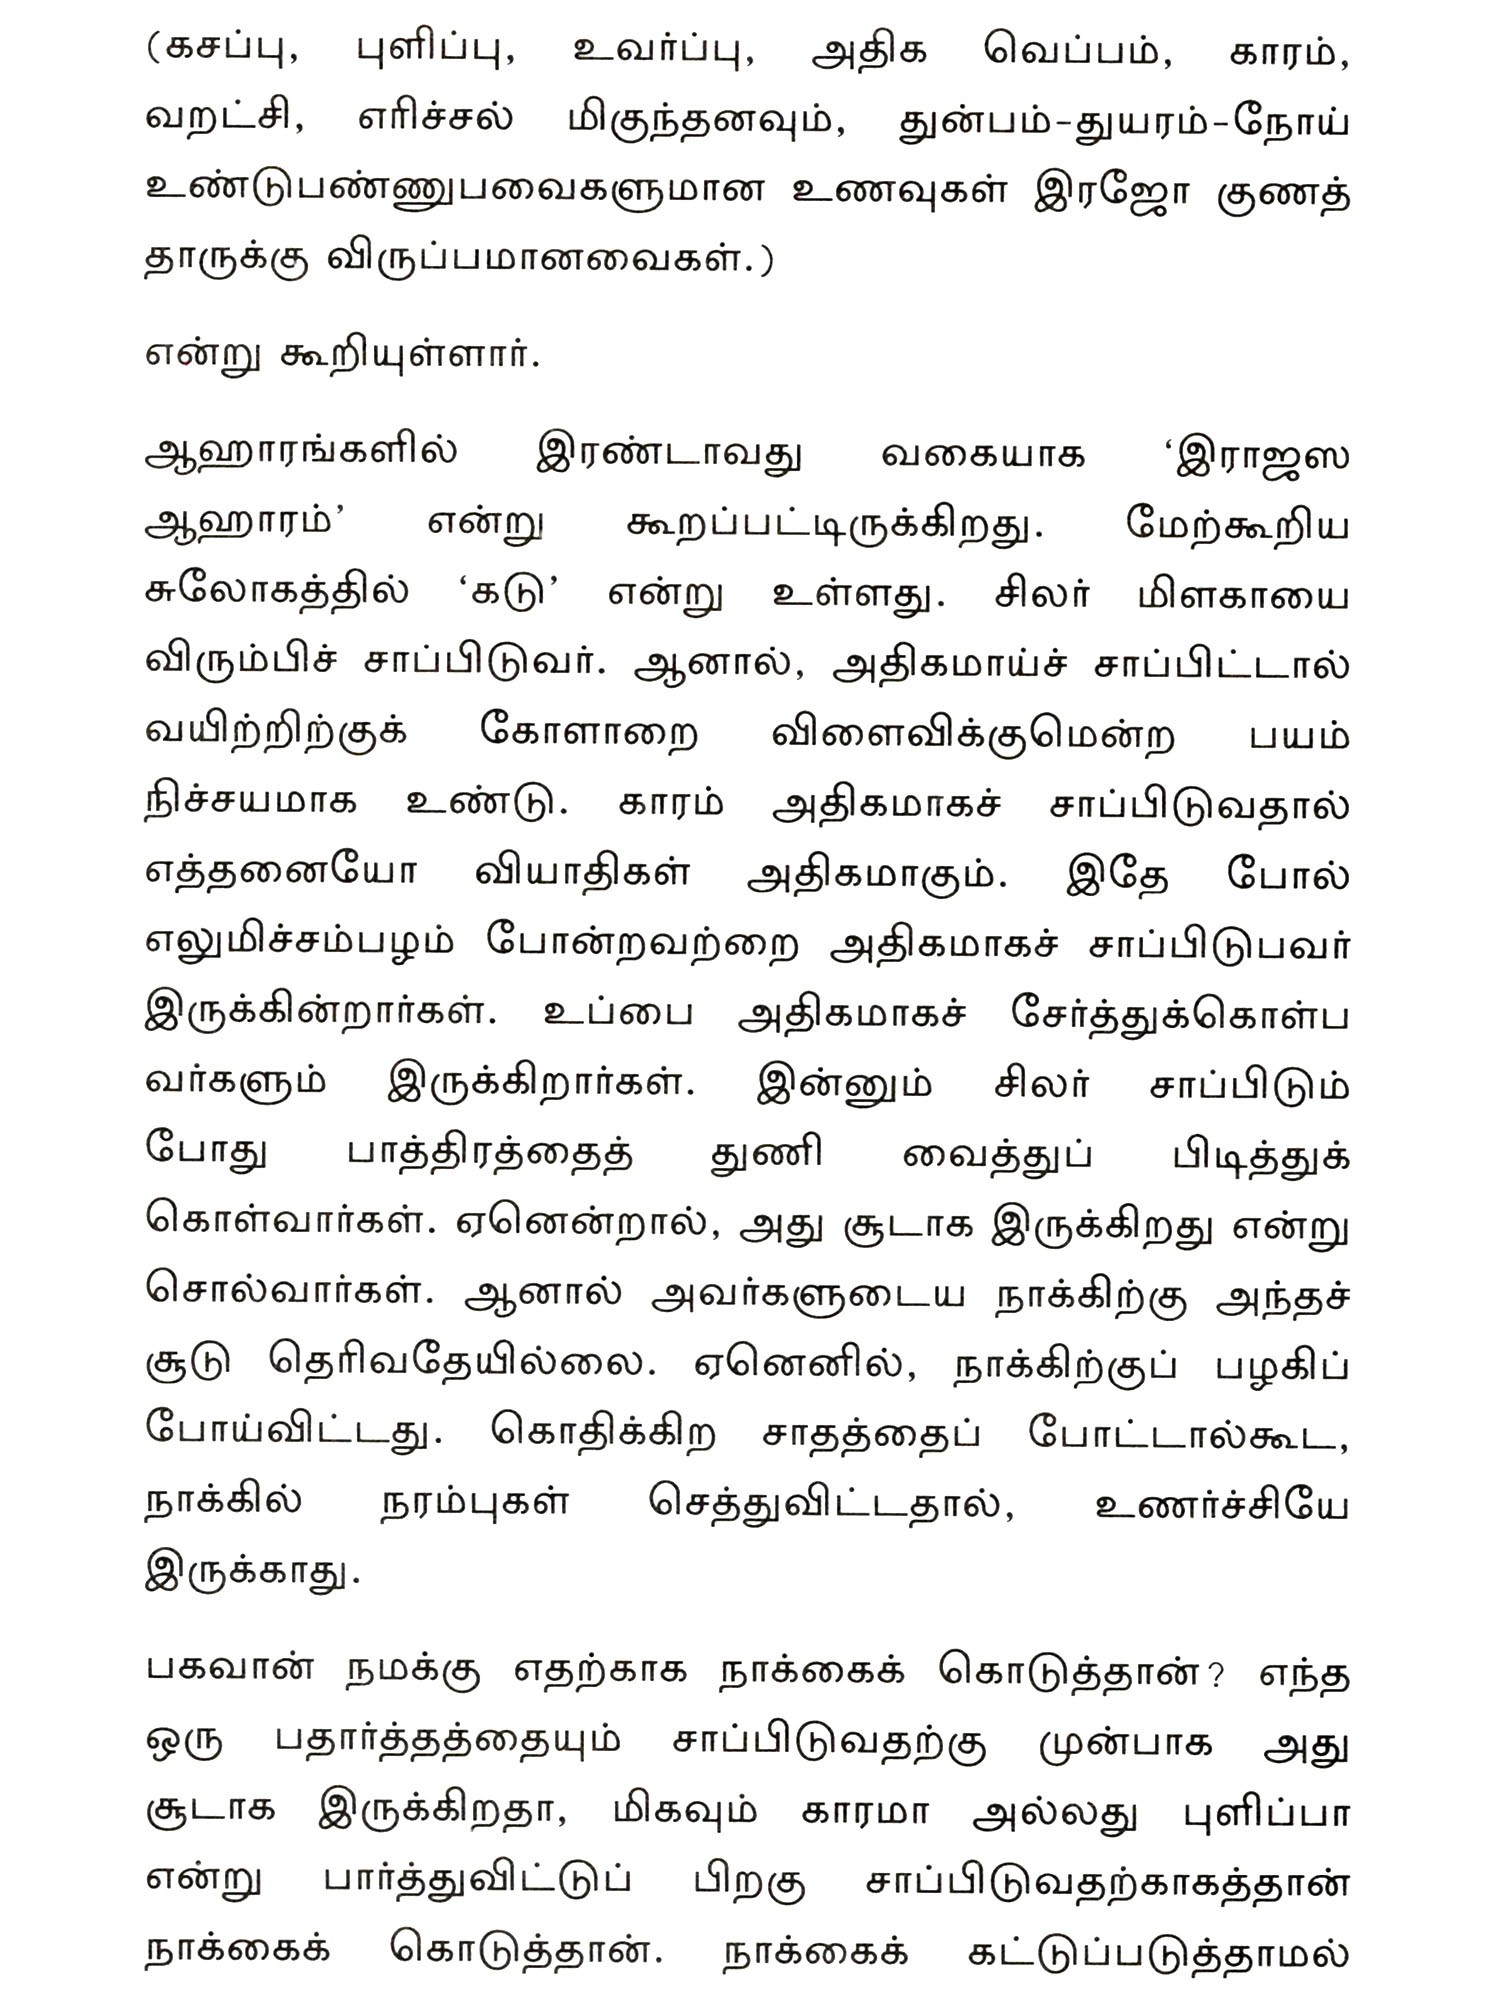 (கசப்பு, புளிப்பு, உவர்ப்பு, அதிக வெப்பம், காரம்,
வறட்சி, எரிச்சல் மிகுந்தனவும், துன்பம்-துயரம்-நோய்
உண்டுபண்ணுபவைகளுமான உணவுகள் இரஜோ குணத்
தாருக்கு விருப்பமானவைகள்.)
என்று கூறியுள்ளார்.
ஆஹாரங்களில் இரண்டாவது வகையாக ‘இராஜஸ
ஆஹாரம்’ என்று கூறப்பட்டிருக்கிறது. மேற்கூறிய
சுலோகத்தில் ‘கடு’ என்று உள்ளது. சிலர் மிளகாயை
விரும்பிச் சாப்பிடுவர். ஆனால், அதிகமாய்ச் சாப்பிட்டால்
வயிற்றிற்குக் கோளாறை விளைவிக்குமென்ற பயம்
நிச்சயமாக உண்டு. காரம் அதிகமாகச் சாப்பிடுவதால்
எத்தனையோ வியாதிகள் அதிகமாகும். இதே போல்
எலுமிச்சம்பழம் போன்றவற்றை அதிகமாகச் சாப்பிடுபவர்
இருக்கின்றார்கள். உப்பை அதிகமாகச் சேர்த்துக்கொள்ப
வர்களும் இருக்கிறார்கள். இன்னும் சிலர் சாப்பிடும்
போது பாத்திரத்தைத் துணி வைத்துப் பிடித்துக்
கொள்வார்கள். ஏனென்றால், அது சூடாக இருக்கிறது என்று
சொல்வார்கள். ஆனால் அவர்களுடைய நாக்கிற்கு அந்தச்
சூடு தெரிவதேயில்லை. ஏனெனில், நாக்கிற்குப் பழகிப்
போய்விட்டது. கொதிக்கிற சாதத்தைப் போட்டால்கூட,
நாக்கில் நரம்புகள் செத்துவிட்டதால், உணர்ச்சியே
இருக்காது.
பகவான் நமக்கு எதற்காக நாக்கைக் கொடுத்தான்? எந்த
ஒரு பதார்த்தத்தையும் சாப்பிடுவதற்கு முன்பாக அது
சூடாக இருக்கிறதா, மிகவும் காரமா அல்லது புளிப்பா
என்று பார்த்துவிட்டுப் பிறகு சாப்பிடுவதற்காகத்தான்
நாக்கைக் கொடுத்தான். நாக்கைக் கட்டுப்படுத்தாமல்